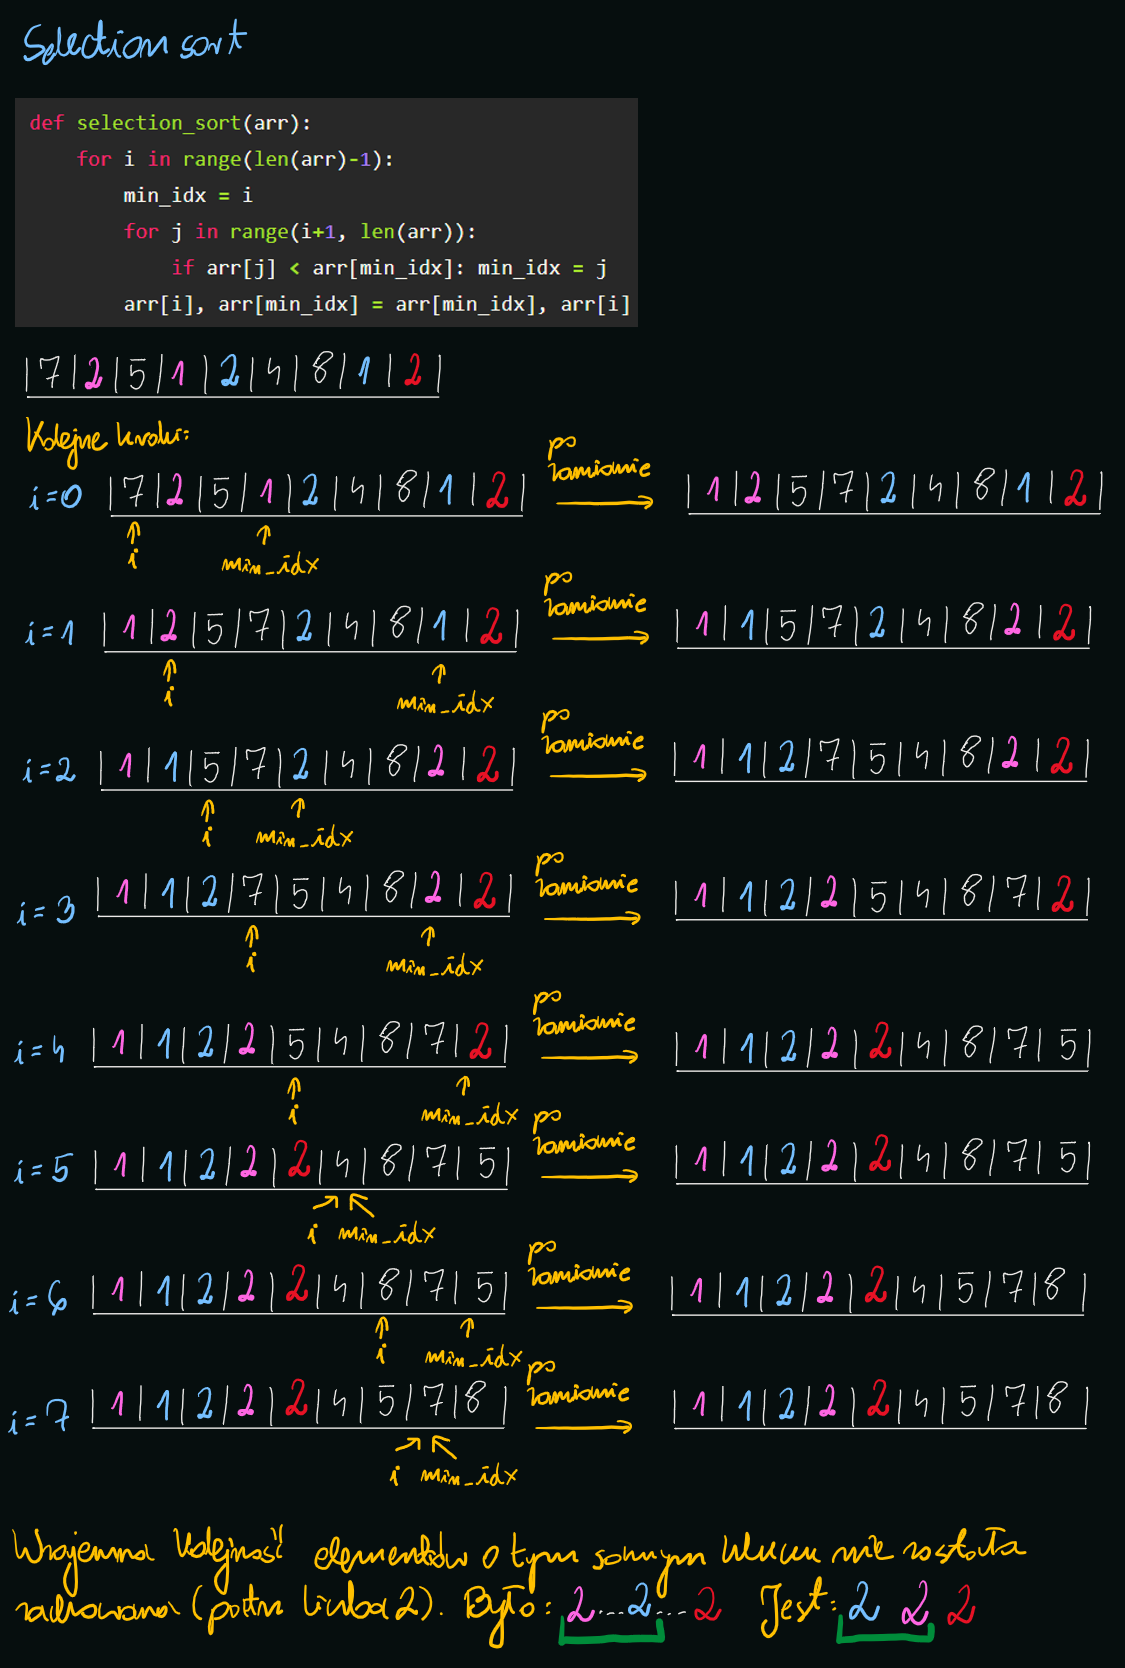 Selection sort
def selection_sort(arr):
    for i in range(len(arr)-1):
        min_idx = i
        for j in range(i+1, len(arr)):
            if arr[j] < arr[min_idx]: min_idx = j
        arr[i], arr[min_idx] = arr[min_idx], arr[i]
|7|2|5|1|2|4|8|1|2|
Kolejne kroki:
i=0 |7|2|5|1|2|4|8|1|2| po zamianie |1|2|5|7|2|4|8|1|2|
i min_idx
i=1 |1|2|5|7|2|4|8|1|2| po zamianie |1|1|5|7|2|4|8|2|2|
i min_idx
i=2 |1|1|5|7|2|4|8|2|2| po zamianie |1|1|2|7|5|4|8|2|2|
i min_idx
i=3 |1|1|2|7|5|4|8|2|2| po zamianie |1|1|2|2|5|4|8|7|2|
i min_idx
i=4 |1|1|2|2|5|4|8|7|2| po zamianie |1|1|2|2|2|4|8|7|5|
i min_idx
i=5 |1|1|2|2|2|4|8|7|5| po zamianie |1|1|2|2|2|4|8|7|5|
i min_idx
i=6 |1|1|2|2|2|4|8|7|5| po zamianie |1|1|2|2|2|4|5|7|8|
i min_idx
i=7 |1|1|2|2|2|4|5|7|8| po zamianie |1|1|2|2|2|4|5|7|8|
i min_idx
Wzajemna kolejność elementów o tym samym kluczu nie została
zachowana (patrz liczba 2). Było: 2...2...2 Jest: 2 2 2